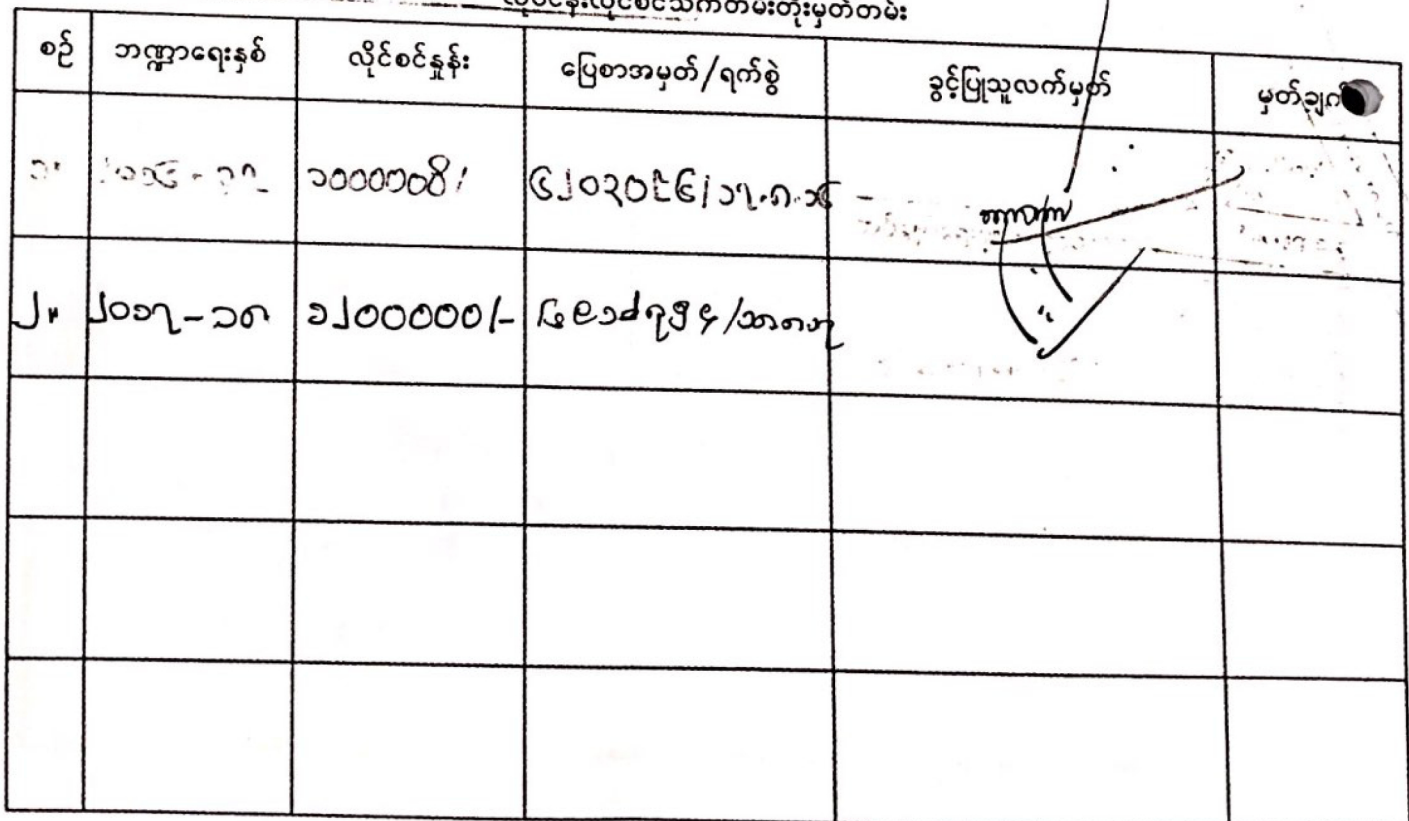 လုပ်ငန်းလိုင်စင်သက်တမ်းတိုးမှတ်တမ်း
စဉ် ဘဏ္ဍာရေးနှစ် လိုင်စင်နှုန်း ပြေစာအမှတ်/ရက်စွဲ ခွင့်ပြုသူလက်မှတ် မှတ်ချက်
၁။ ၂၀၁၆-၁၇ ၆၂၀၃၀၉၆/၁၇.၈.၁၆
၂။ ၂၀၁၇-၁၈ ၁၂၀၀၀၀၀/-